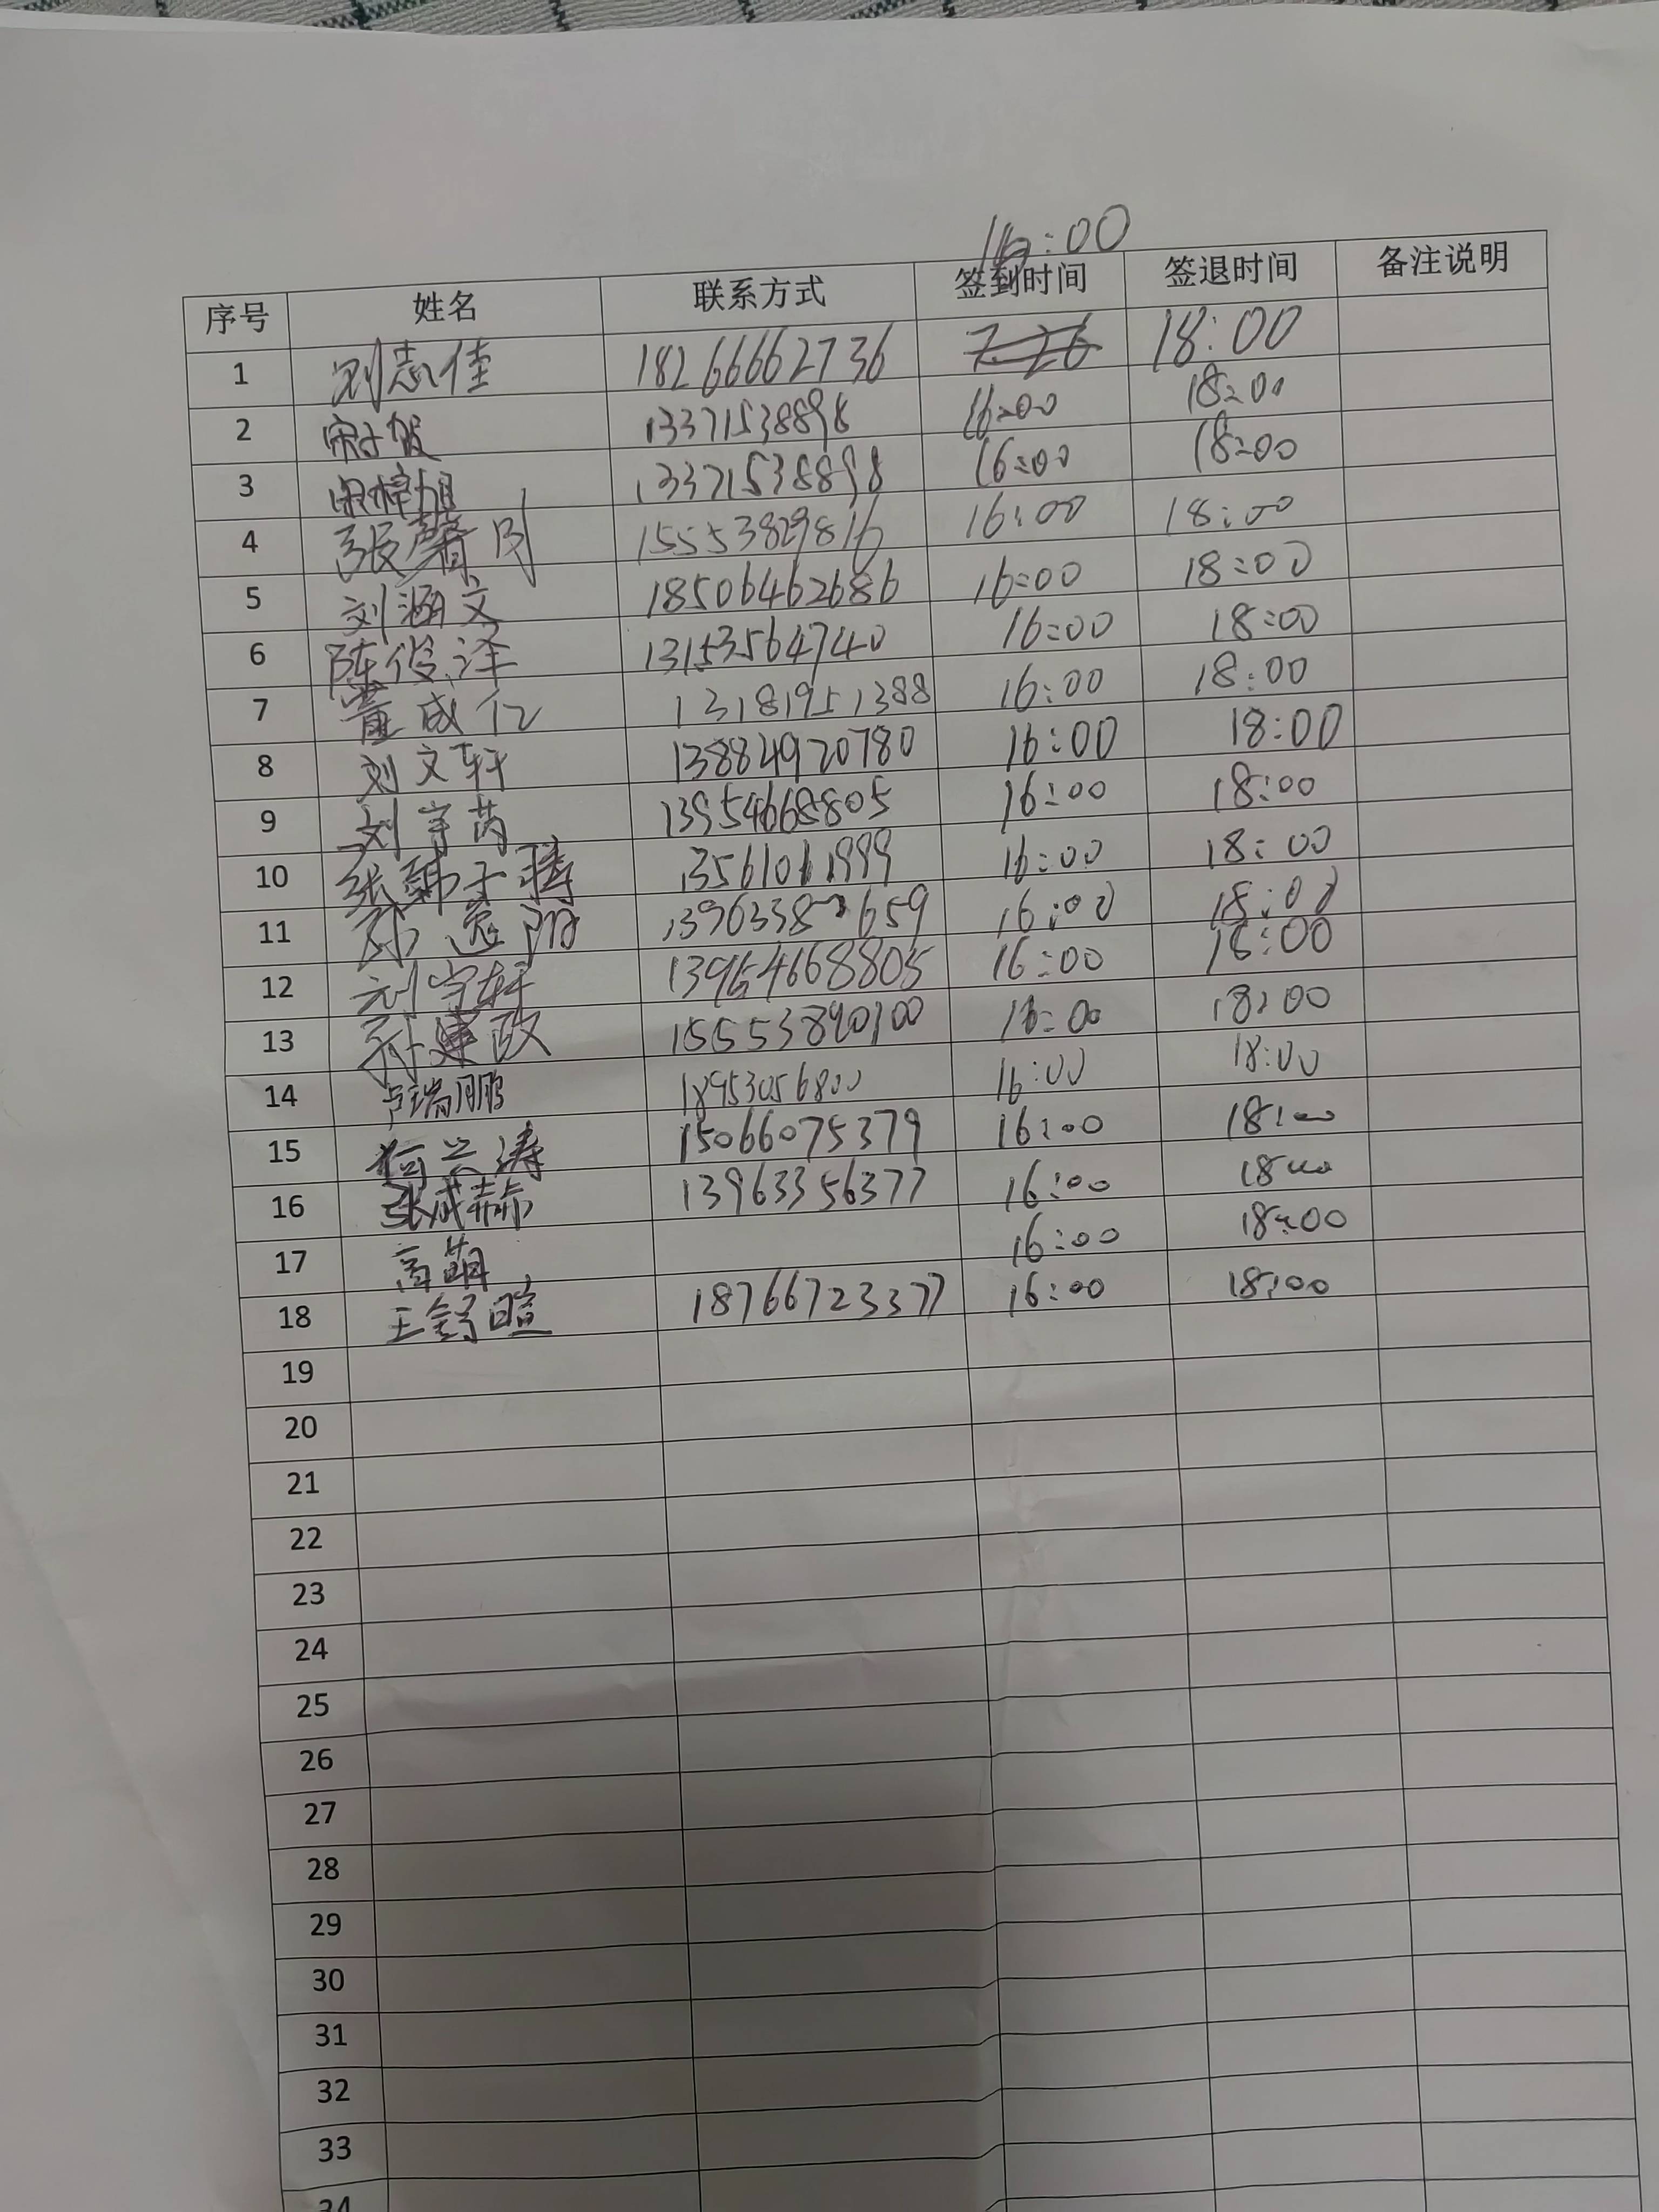 16:00
序号 姓名 联系方式 签到时间 签退时间 备注说明
1 刘志佳 18266662736 7.26 18:00
2 13371538898 16:00 18:00
3 宋梓旭 13371538898 16:00 18:00
4 张馨月 15553829816 16:00 18:00
5 刘涵文 18506462686 16:00 18:00
6 陈俊泽 13153564740 16:00 18:00
7 董咸仁 13181951388 16:00 18:00
8 刘文轩 13884920780 16:00 18:00
9 刘宇芮 13954668805 16:00 18:00
10 张韩子骞 13561061999 16:00 18:00
11 孙逸阳 16:00 18:00
12 刘宇轩 13954668805 16:00 18:00
13 孙建政 15553890100 16:00 18:00
14 卢瑞鹏 18953056800 16:00 18:00
15 何兴涛 15066075379 16:00 18:00
16 张成赫 13963356377 16:00 18:00
17 高萌 16:00 18:00
18 王舒暄 18766723377 16:00 18:00
19
20
21
22
23
24
25
26
27
28
29
30
31
32
33
34